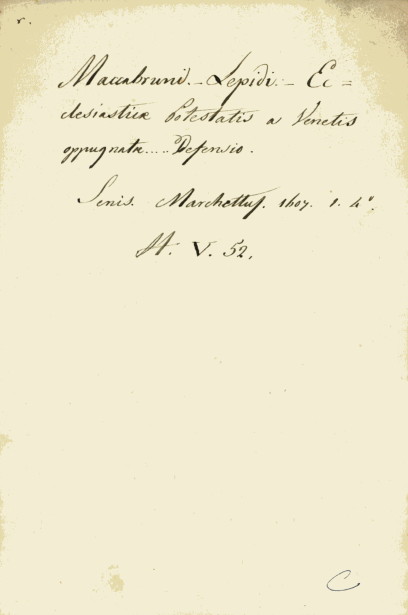 r.
Maccabruni. – Lepidi. – Ec=
clesiasticæ Potestatis a Venetis
oppugnatæ..... Defensio.
Senis. Marchettus. 1607. 1. 4°.
V. 52.
C